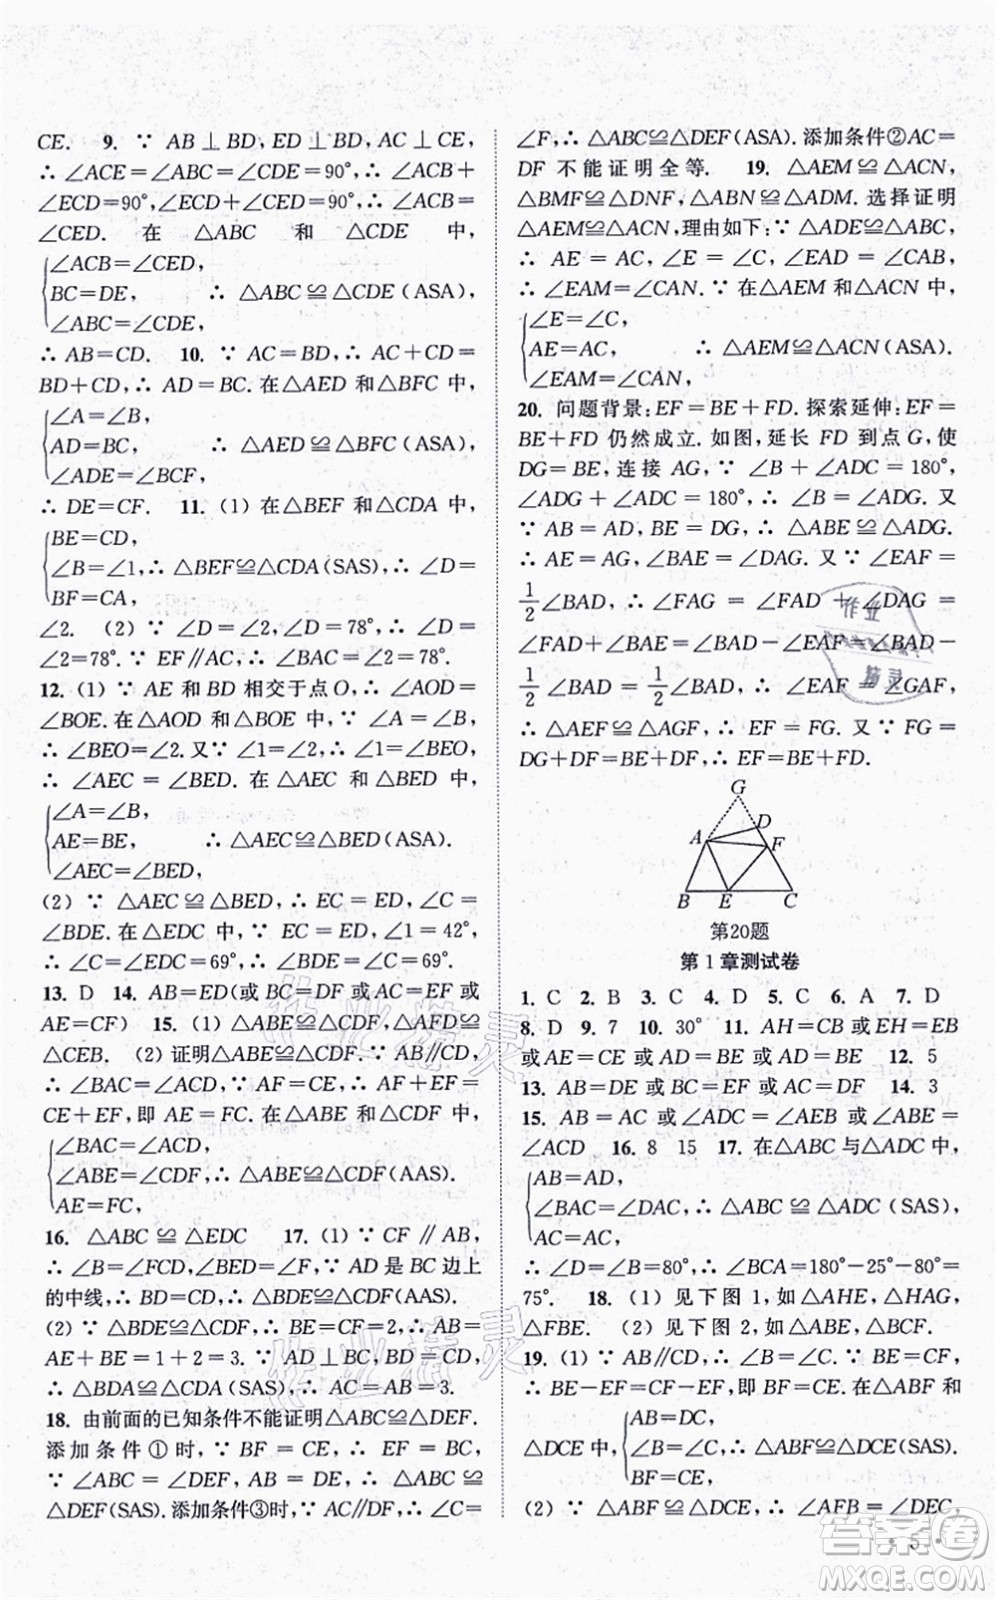 CE. 9. ∵ AB⊥BD,ED⊥BD,AC⊥CE,
∴ ∠ACE=∠ABC=∠CDE=90°,∴ ∠ACB+
∠ECD=90°,∠ECD+∠CED=90°,∴ ∠ACB=
∠CED. 在 △ABC 和 △CDE 中,
∠ACB=∠CED,
BC=DE, ∴ △ABC≌△CDE(ASA),
∠ABC=∠CDE,
∴ AB=CD. 10. ∵ AC=BD,∴ AC+CD=
BD+CD,∴ AD=BC. 在△AED 和△BFC 中,
∠A=∠B,
AD=BC, ∴ △AED≌△BFC(ASA),
∠ADE=∠BCF,
∴ DE=CF. 11. (1) 在△BEF 和△CDA 中,
BE=CD,
∠B=∠1,∴ △BEF≌△CDA(SAS),∴ ∠D=
BF=CA,
∠2. (2) ∵ ∠D=∠2,∠D=78°,∴ ∠D=
∠2=78°. ∵ EF∥AC,∴ ∠BAC=∠2=78°.
12. (1) ∵ AE 和 BD 相交于点 O,∴ ∠AOD=
∠BOE. 在△AOD 和△BOE 中,∵ ∠A=∠B,
∴ ∠BEO=∠2. 又∵ ∠1=∠2,∴ ∠1=∠BEO,
∴ ∠AEC=∠BED. 在△AEC 和△BED 中,
∠A=∠B,
AE=BE, ∴ △AEC≌△BED(ASA).
∠AEC=∠BED,
(2) ∵ △AEC≌△BED,∴ EC=ED,∠C=
∠BDE. 在△EDC 中,∵ EC=ED,∠1=42°,
∴ ∠C=∠EDC=69°,∴ ∠BDE=∠C=69°.
13. D 14. AB=ED(或 BC=DF 或 AC=EF 或
AE=CF) 15. (1) △ABE≌△CDF,△AFD≌
△CEB. (2) 证明△ABE≌△CDF. ∵ AB∥CD,
∴ ∠BAC=∠ACD. 又∵ AF=CE,∴ AF+EF=
CE+EF,即 AE=FC. 在△ABE 和△CDF 中,
∠BAC=∠ACD,
∠ABE=∠CDF,∴ △ABE≌△CDF(AAS).
AE=FC,
16. △ABC≌△EDC 17. (1) ∵ CF∥AB,
∴ ∠B=∠FCD,∠BED=∠F,∵ AD 是 BC 边上
的中线,∴ BD=CD,∴ △BDE≌△CDF(AAS).
(2) ∵ △BDE≌△CDF,∴ BE=CF=2,∴ AB=
AE+BE=1+2=3. ∵ AD⊥BC,BD=CD,
∴ △BDA≌△CDA(SAS),∴ AC=AB=3.
18. 由前面的已知条件不能证明△ABC≌△DEF.
添加条件①时,∵ BF=CE,∴ EF=BC.
∵ ∠ABC=∠DEF,AB=DE,∴ △ABC≌
△DEF(SAS). 添加条件③时,∵ AC∥DF,∴ ∠C=
∠F,∴ △ABC≌△DEF(ASA). 添加条件②AC=
DF 不能证明全等. 19. △AEM≌△ACN,
△BMF≌△DNF,△ABN≌△ADM. 选择证明
△AEM≌△ACN,理由如下:∵ △ADE≌△ABC,
∴ AE=AC,∠E=∠C,∠EAD=∠CAB,
∴ ∠EAM=∠CAN. 在△AEM 和△ACN 中,
∠E=∠C,
AE=AC, ∴ △AEM≌△ACN(ASA).
∠EAM=∠CAN,
20. 问题背景:EF=BE+FD. 探索延伸:EF=
BE+FD 仍然成立. 如图,延长 FD 到点 G,使
DG=BE,连接 AG,∵ ∠B+∠ADC=180°,
∠ADG+∠ADC=180°,∴ ∠B=∠ADG. 又
∵ AB=AD,BE=DG,∴ △ABE≌△ADG.
∴ AE=AG,∠BAE=∠DAG. 又∵ ∠EAF=
1/2∠BAD,∴ ∠FAG=∠FAD+∠DAG=
∠FAD+∠BAE=∠BAD-∠EAF=∠BAD-
1/2∠BAD=1/2∠BAD,∴ ∠EAF=∠GAF,
∴ △AEF≌△AGF,∴ EF=FG. 又∵ FG=
DG+DF=BE+DF,∴ EF=BE+FD.
G
D
A F
B E C
第20题
第1章测试卷
1. C 2. B 3. C 4. D 5. C 6. A 7. D
8. D 9. 7 10. 30° 11. AH=CB 或 EH=EB
或 AE=CE 或 AD=BE 12. 5
13. AB=DE 或 BC=EF 或 AC=DF 14. 3
15. AB=AC 或∠ADC=∠AEB 或∠ABE=
∠ACD 16. 8 15 17. 在△ABC 与△ADC 中,
AB=AD,
∠BAC=∠DAC,∴ △ABC≌△ADC(SAS),
AC=AC,
∴ ∠D=∠B=80°,∴ ∠BCA=180°-25°-80°=
75°. 18. (1) 见下图 1,如△AHE,△HAG,
△FBE. (2) 见下图 2,如△ABC,△ABD.
19. (1) ∵ AB∥CD,∴ ∠B=∠C. ∵ BF=CE,
∴ BE-EF=EC-EF,即 BF=CE. 在△ABF 和
△DCE 中,
AB=DC,
∠B=∠C,∴ △ABF≌△DCE(SAS).
BF=CE,
(2) ∵ △ABF≌△DCE,∴ ∠AFB=∠DEC,
· 5 ·
作业精灵
作业精灵
作业
精灵
答案圈
MXQE.COM